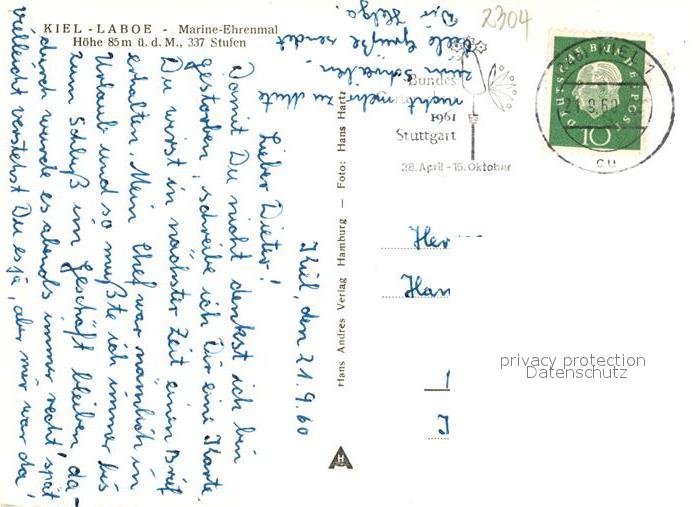 KIEL - LABOE - Marine-Ehrenmal
Höhe 85 m ü. d. M., 337 Stufen
Kiel, den 21.9.60
Lieber Dieter!
Damit Du nicht denkst ich bin
gestorben, schreibe ich Dir eine Karte.
Du wirst in nächster Zeit einen Brief
erhalten. Mein Chef war nämlich in
Urlaub und so mußte ich immer bis
zum Schluß im Geschäft bleiben, da-
durch wurde es abends immer recht spät
vielleicht verstehst Du es ja, aber mir war da
nicht mehr zu Mute
zum Schreiben.
Viele Grüße sendet
Dir Helga.
Hans Andres Verlag Hamburg — Foto: Hans Hartz
H
2304
Bundes
1961
Stuttgart
28. April - 15. Oktober
DEUTSCHE BUNDESPOST
10
Her
Han
privacy protection
Datenschutz